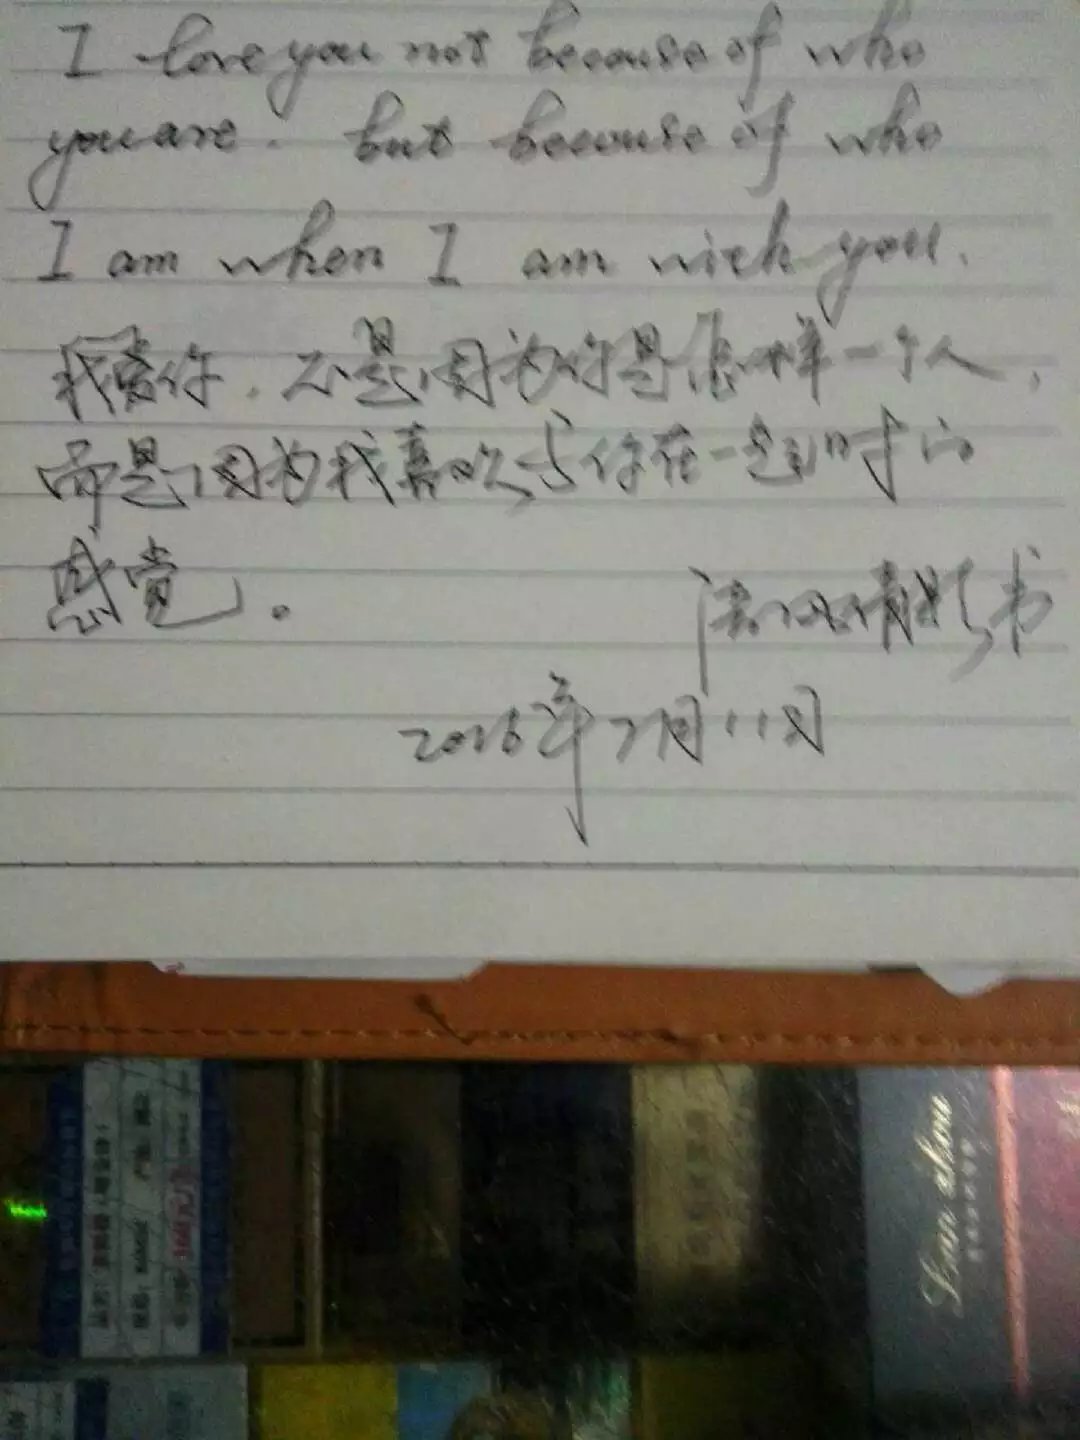 I love you not because of who
you are. but because of who
I am when I am with you.
我爱你，不是因为你是怎样一个人，
而是因为我喜欢与你在一起时的
感觉。
书
2016年7月11日